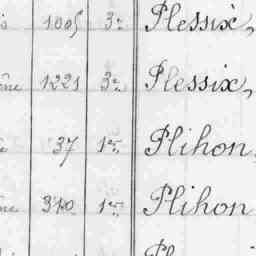 1005 3e Plessix,
1221 3e Plessix,
37 1er Plihon,
310 1er Plihon